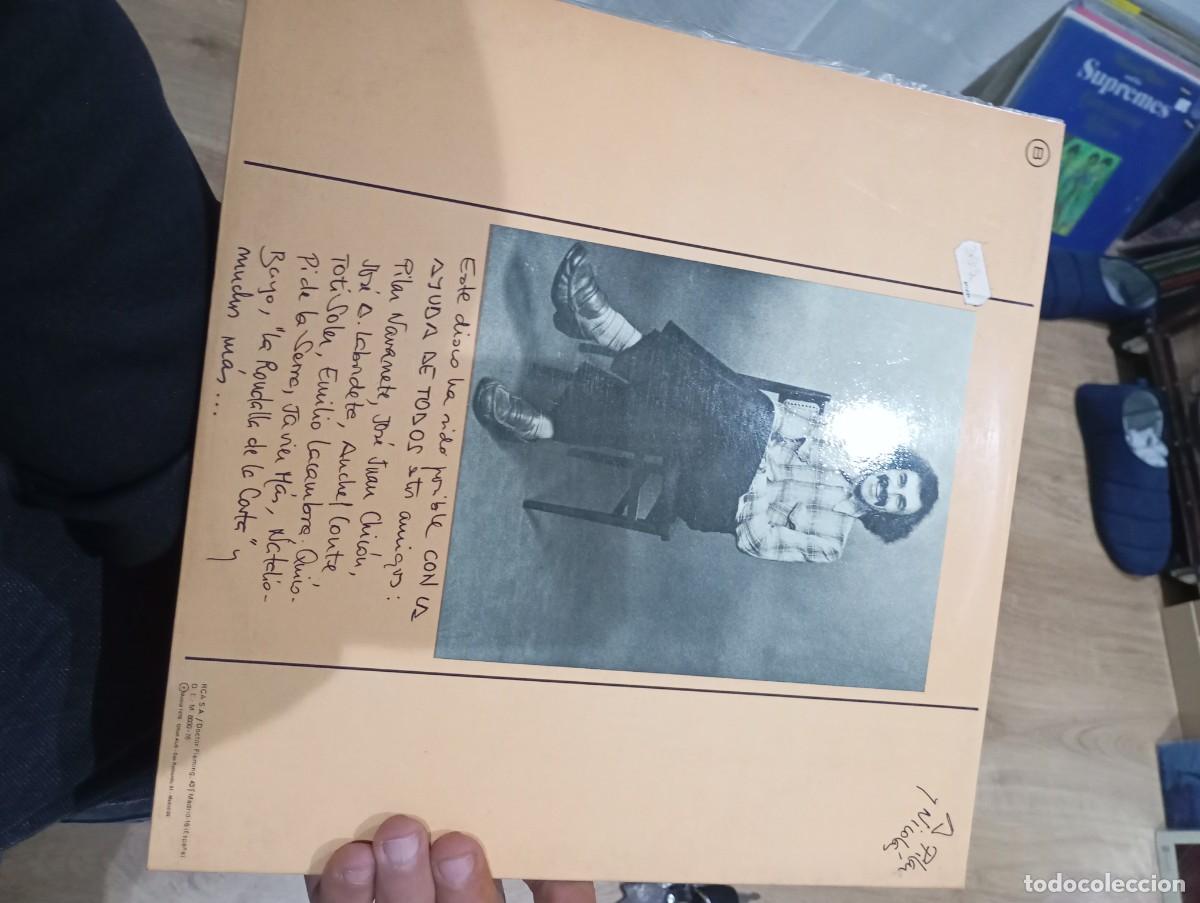 A Pilar
y Nicolás
B
Este disco ha sido posible CON LA
AYUDA DE TODOS estos amigos:
Pilar Navarrete, José Juan Chicón,
José A. Labordeta, Anchel Conte
Toti Soler, Emilio Lacambra. Quico
Pi de la Serra, Javier Más, Natalio
Bayo, "La Rondalla de la Cartà" y
muchos más...
RCA S.A. / Doctor Fleming, 43 / Madrid-16 (España)
D. L.: M. 8000-76
Supremes
todocoleccion